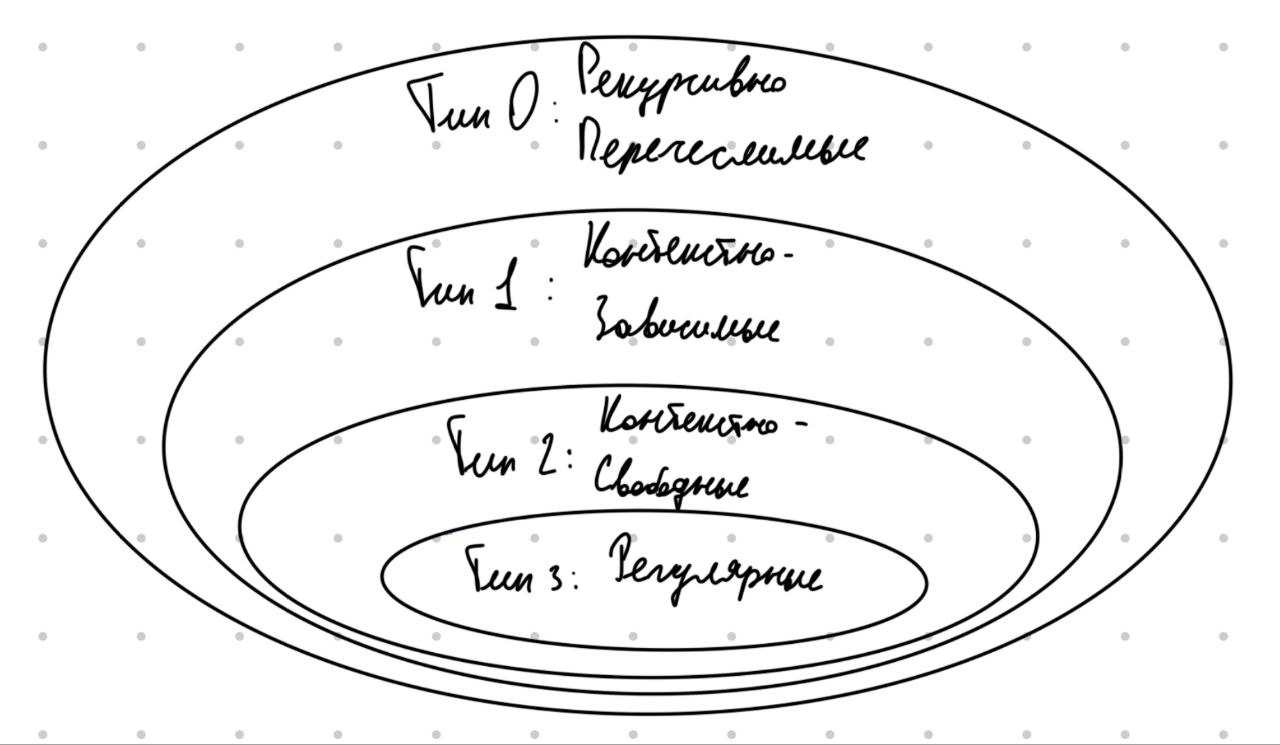 Тип 0: Рекурсивно
Перечеслимые
Тип 1: Контекстно-
Зависимые
Тип 2: Контекстно-
Свободные
Тип 3: Регулярные